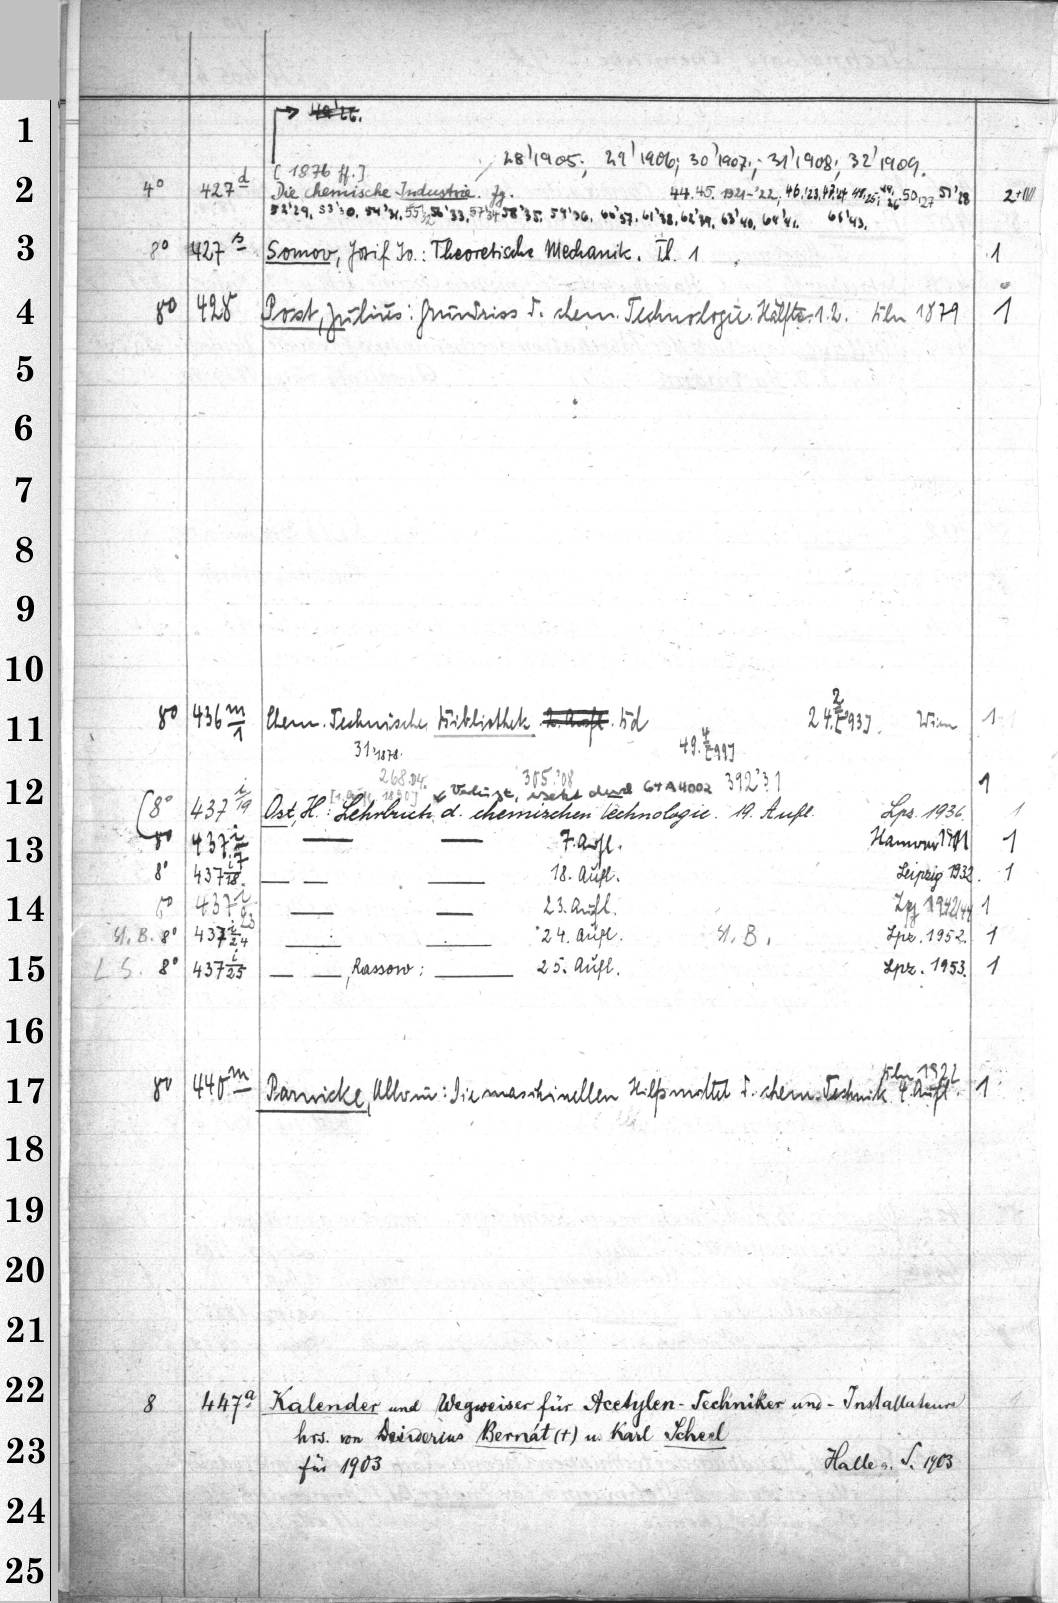 1
28'1905; 29'1906; 30'1907; 31'1908; 32'1909.
[1876 ff.]
2 4° 427 d Die chemische Industrie. Jg. 44.45. 1921-'22, 46.'23, 50,'27 51'28 2+IIII
52'29, 53'30, 54'31, 55'32 56'33, 57'34 58'35, 59'36, 60'37, 61'38, 62'39, 63'40, 64'41. 65'43.
3 8° 427 s Somov, Josif Io.: Theoretische Mechanik. Tl. 1 1
4 8° 428 Post, Julius: Grundriss d. chem. Technologie. Hälfte 1.2. Bln 1879 1
5
6
7
8
9
10
11 8° 436 m/1 Chem. Technische Bibliothek 2. Aufl. Bd 24.2[93]. Wien 1
31'1878. 49.4[99]
268.04. 305.'08 392'31
12 [1. Aufl. 1890] G+A 4002 1
8° 437 i/19 Ost, H.: Lehrbuch d. chemischen Technologie. 19. Aufl. Lpz. 1936. 1
13 8° 437 i/7 — — 7. Aufl. Hannover 1911 1
8° 437 i/18 — — — 18. Aufl. Leipzig 1932. 1
14 8° 437 i/23 — — 23. Aufl. Lpz 1942/44 1
St. B. 8° 437 i/24 — — 24. Aufl. St. B. Lpz. 1952. 1
15 L S. 8° 437 i/25 — —, Rassow: — 25. Aufl. Lpz. 1953. 1
16
Bln 1922
17 8° 440 m Parnicke, Alwin: Die maschinellen Hilfsmittel d. chem. Technik 4. Aufl. 1
18
19
20
21
22 8 447 a Kalender und Wegweiser für Acetylen-Techniker und -Installateure
hrs. von Desiderius Bernát (+) u. Karl Scheel
23 für 1903 Halle a. S. 1903
24
25